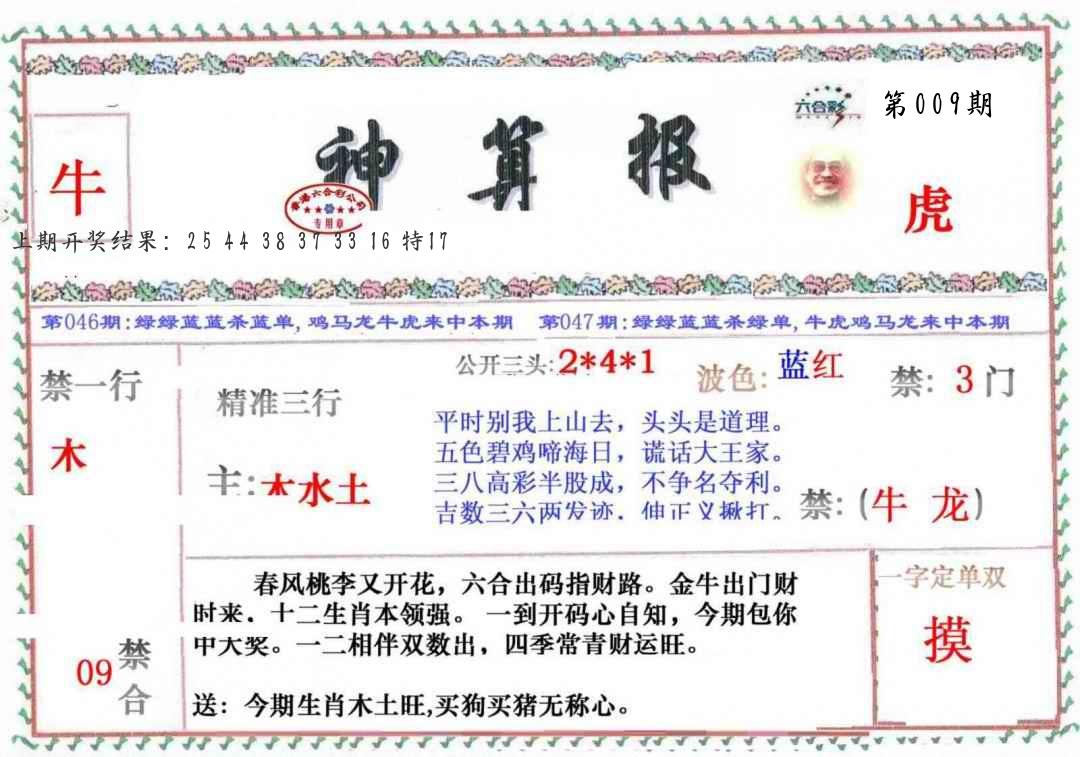 六合彩
第009期
神算报
牛
香港六合彩公司
专用章
虎
上期开奖结果: 25 44 38 37 33 16 特17
第046期:绿绿蓝蓝杀蓝单,鸡马龙牛虎来中本期
第047期:绿绿蓝蓝杀绿单,牛虎鸡马龙来中本期
禁一行
木
精准三行
主:木水土
公开三头:2*4*1
波色:蓝红
禁: 3门
平时别我上山去，头头是道理。
五色碧鸡啼海日，谎话大王家。
三八高彩半股成，不争名夺利。
吉数三六两发迹，伸正义揪打。
禁:(牛 龙)
春风桃李又开花，六合出码指财路。金牛出门财
时来，十二生肖本领强。 一到开码心自知，今期包你
中大奖。一二相伴双数出，四季常青财运旺。
送：今期生肖木土旺,买狗买猪无称心。
09
禁合
一字定单双
摸